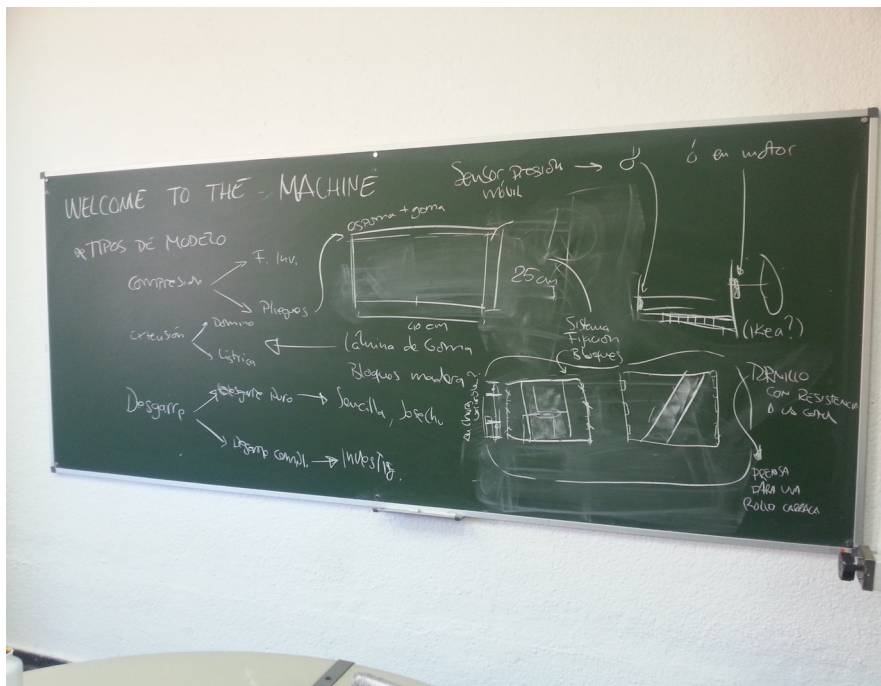 WELCOME TO THE MACHINE
*TIPOS DE MODELO
Compresión
F. Inv.
Pliegues
Extensión
Domino
Lístrica
Desgarre
Desgarre Puro
Sencilla, Josechu
Desgarre Compl.
Investig.
espuma + goma
40 cm
25 cm
Lámina de Goma
Bloques madera
Sensor presión
móvil
ó en motor
(Ikea?)
Sistema
Fijación
Bloques
Anchura
variable?
TORNILLO
CON RESISTENCIA
A LA GOMA
PRENSA
PARA UVA
ROLLO CARRACA